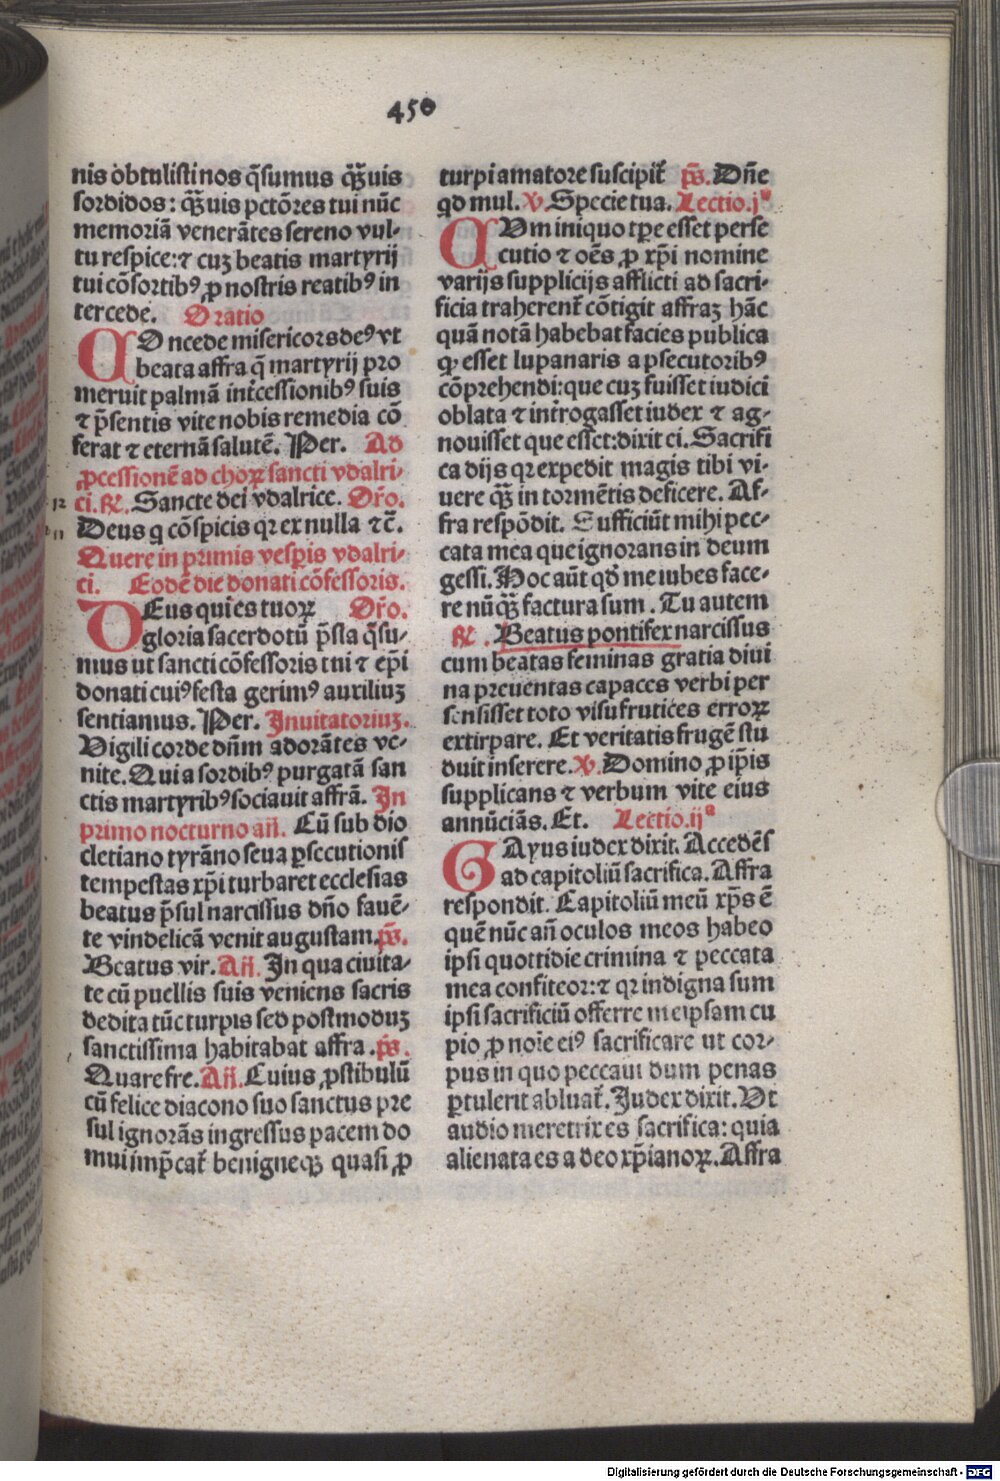 450
nis obtulisti nos q̄sumus q̄ꝫuis
sordidos: q̄ꝫuis pctōres tui nūc
memoriā venerātes sereno vul-
tu respice: ⁊ cuꝫ beatis martyrij
tui cōsortibꝰ ꝓ nostris reatibꝰ in
tercede. Oratio
COncede misericors deꝰ vt
beata affra q̄ martyrij pro
meruit palmā int̄cessionibꝰ suis
⁊ p̄sentis vite nobis remedia cō
ferat ⁊ eternā salutē. Per. Ad
ꝓcessionē ad choꝝ sancti vdalri-
ci. ℟. Sancte dei vdalrice. Or̄o.
Deus q cōspicis qꝛ ex nulla ⁊c̄.
Quere in primis vesꝑis vdalri-
ci. Eodē die donati cōfessoris.
DEus qui es tuoꝝ Or̄o.
gloria sacerdotū p̄sta q̄su-
mus ut sancti cōfessoris tui ⁊ ep̄i
donati cuiꝰ festa gerimꝰ auxiliuꝫ
sentiamus. Per. Inuitatoriuꝫ.
Vigili corde dn̄m adorātes ve-
nite. Qui a sordibꝰ purgatā san
ctis martyribꝰ sociauit affrā. In
primo nocturno an̄. Cū sub dio
cletiano tyrāno seua ꝑsecutionis
tempestas xp̄i turbaret ecclesias
beatus p̄sul narcissus dn̄o fauē-
te vindelicā venit augustam. p̄s.
Beatus vir. An̄. In qua ciuita-
te cū puellis suis veniens sacris
dedita tūc turpis sed postmoduꝫ
sanctissima habitabat affra. p̄s.
Quare fre. An̄. Cuius ꝓstibulū
cū felice diacono suo sanctus pre
sul ignorās ingressus pacem do
mui imp̄cat̄ benigneqꝫ quasi ꝓ
turpi amatore suscipit̄ p̄s. Dn̄e
qd mul. ℣. Specie tua. Lectio. jᵃ
CUm iniquo tꝑe esset perse
cutio ⁊ oēs ꝓ xp̄i nomine
varijs supplicijs afflicti ad sacri-
ficia traherent̄ cōtigit affraꝫ hāc
quā notā habebat facies publica
ꝙ esset lupanaris a ꝑsecutoribꝰ
cōprehendi: que cuꝫ fuisset iudici
oblata ⁊ int̄rogasset iudex ⁊ ag-
nouisset que esset: dixit ei. Sacrifi
ca dijs qꝛ expedit magis tibi vi-
uere q̄ꝫ in tormētis deficere. Af-
fra respōdit. Sufficiūt mihi pec-
cata mea que ignorans in deum
gessi. Hoc aūt qd̄ me iubes face-
re nūq̄ꝫ factura sum. Tu autem
℟. Beatus pontifex narcissus
cum beatas feminas gratia diui
na preuentas capaces verbi per
sensisset toto visu frutices erroꝝ
extirpare. Et veritatis frugē stu
duit inserere. ℣. Domino ꝓ ip̄is
supplicans ⁊ verbum vite eius
annūciās. Et. Lectio. ijᵃ
GAyus iudex dixit. Accedēs
ad capitoliū sacrifica. Affra
respondit. Capitoliū meū xp̄s ē
quē nūc an̄ oculos meos habeo
ipsi quottidie crimina ⁊ peccata
mea confiteor: ⁊ qꝛ indigna sum
ipsi sacrificiū offerre meipsam cu
pio ꝓ noīe eiꝰ sacrificare ut cor-
pus in quo peccaui dum penas
ꝑtulerit abluat̄. Judex dixit. Vt
audio meretrix es sacrifica: quia
alienata es a deo xp̄ianoꝝ. Affra
Digitalisierung gefördert durch die Deutsche Forschungsgemeinschaft - DFG